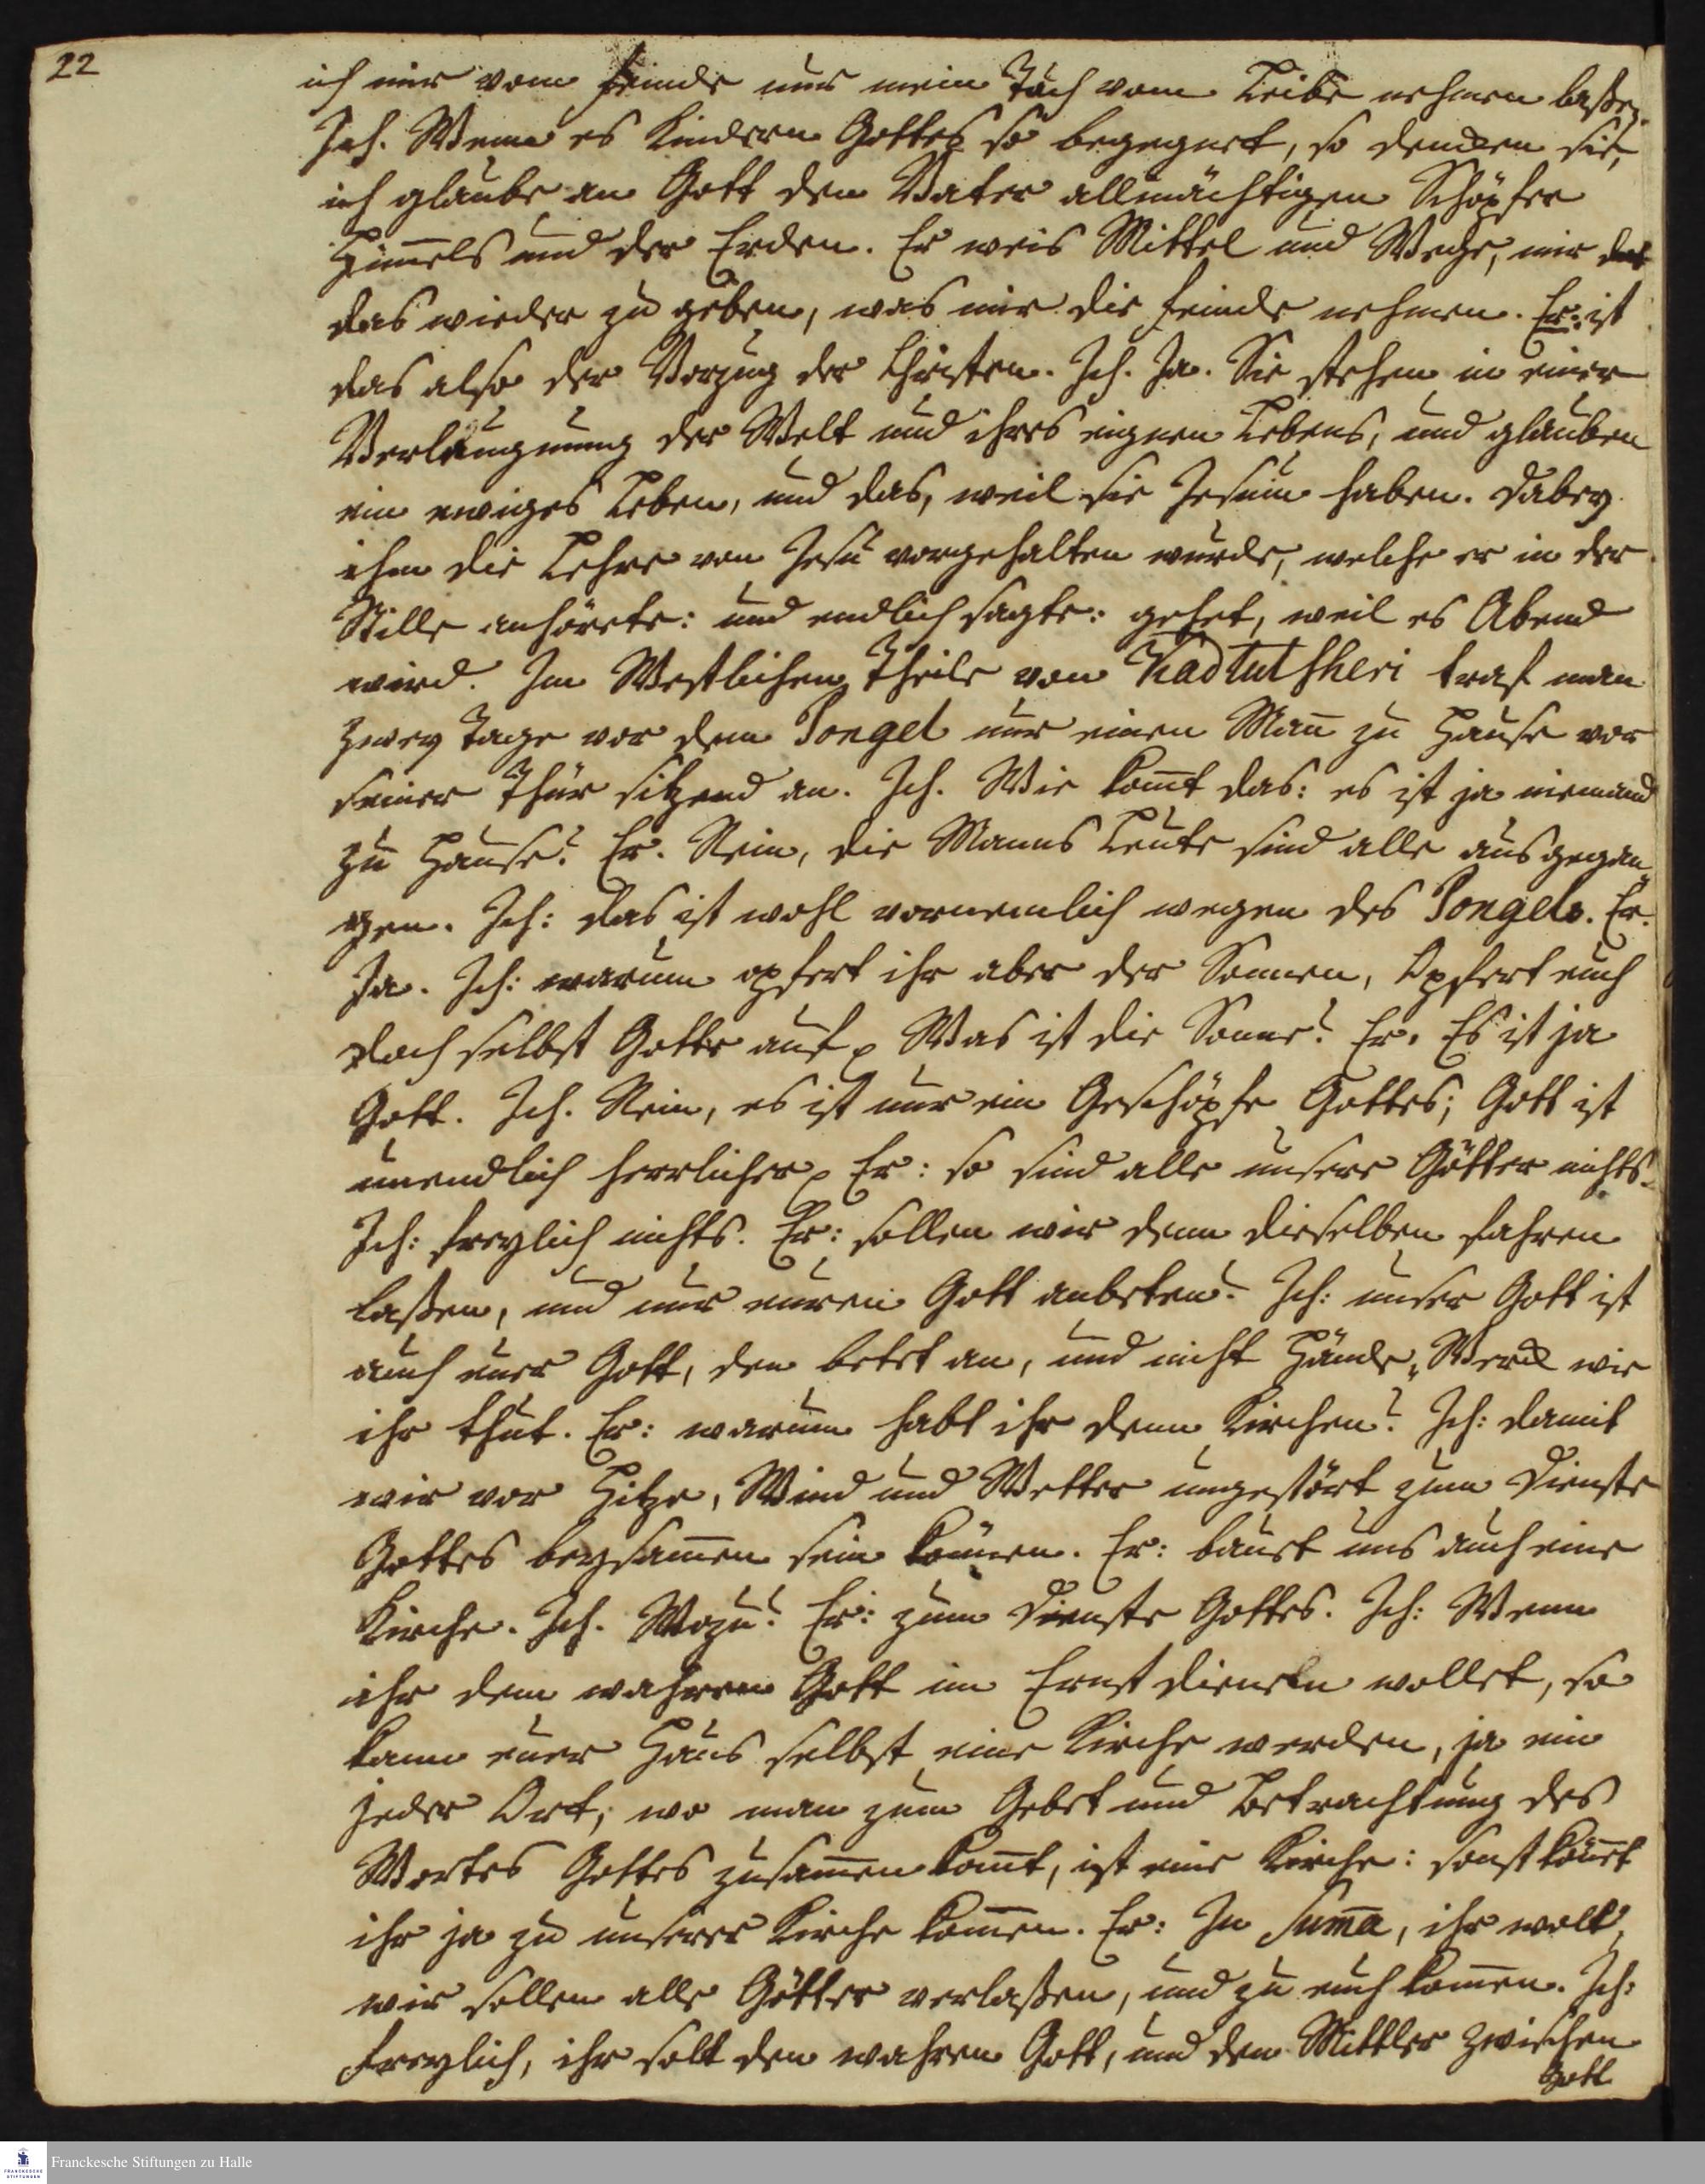 22
ich mir vom Feinde nur mein Tuch vom Leibe nehmen laße.
Ich. Wenn es Kindern Gottes so begegnet, so dencken sie,
ich glaube an Gott den Vater allmächtigen Schöpfer
Him̄els und der Erden. Er weis Mittel und Wege, mir
das wieder zu geben, was mir die Feinde nehmen. Er: ist
das also der Vorzug der Christen. Ich. Ja. Sie stehen in einer
Verläugnung der Welt und ihres eignen Lebens, und glauben
ein ewiges Leben, und das, weil sie Jesum haben. Dabey
ihm die Lehre von Jesu vorgehalten wurde, welche er in der
Stille anhörete: und endlich sagte: gehet, weil es Abend
wird. Im Westlichen Theile von Kadtutsheri traf man
zwey Tage vor dem Pongel nur einen Man̄ zu Hause vor
seiner Thür sitzend an. Ich. Wie kom̄t das: es ist ja niemand
zu Hause? Er. Nein, die Manns Leute sind alle ausgegan„
gen. Ich: das ist wohl vornemlich wegen des Pongels. Er.
Ja. Ich: warum opfert ihr aber der Sonnen, Opfert euch
doch selbst Gotte auf. Was ist die Sonne? Er. Es ist ja
Gott. Ich. Nein, es ist nur ein Geschöpfe Gottes; Gott ist
unendlich herrlicher. Er: so sind alle unsere Götter nichts.
Ich: freylich nichts. Er: sollen wir denn dieselben fahren
laßen, und nur euren Gott anbeten? Ich: unser Gott ist
auch euer Gott, den betet an, und nicht Hände„Werck wie
ihr thut. Er: warum habt ihr denn Kirchen? Ich: damit
wir vor Hitze, Wind und Wetter ungestört zum Dienste
Gottes beysam̄en sein können. Er: bauet uns auch eine
Kirche. Ich. Wozu? Er: zum Dienste Gottes. Ich: Wenn
ihr dem wahren Gott im Ernst dienen wollet, so
kann euer Haus selbst eine Kirche werden, ja ein
jeder Ort, wo man zum Gebet und Betrachtung des
Wortes Gottes zusam̄en kom̄t, ist eine Kirche: sonst kön̄et
ihr ja zu unserer Kirche kom̄en. Er: In Sum̄a, ihr wollt,
wir sollen alle Götter verlaßen, und zu euch kom̄en. Ich:
freylich, ihr solt den wahren Gott, und den Mittler zwischen
Gott
Franckesche Stiftungen zu Halle
FRANCKESCHE
STIFTUNGEN